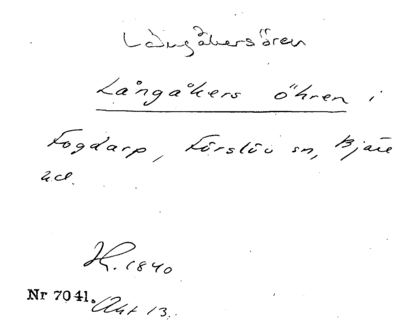 Långåkersören
Långåkers öhren i
Fogdarp, Förslöv sn, Bjäre
hd.
H. 1840
Nr 7041. Akt 13.